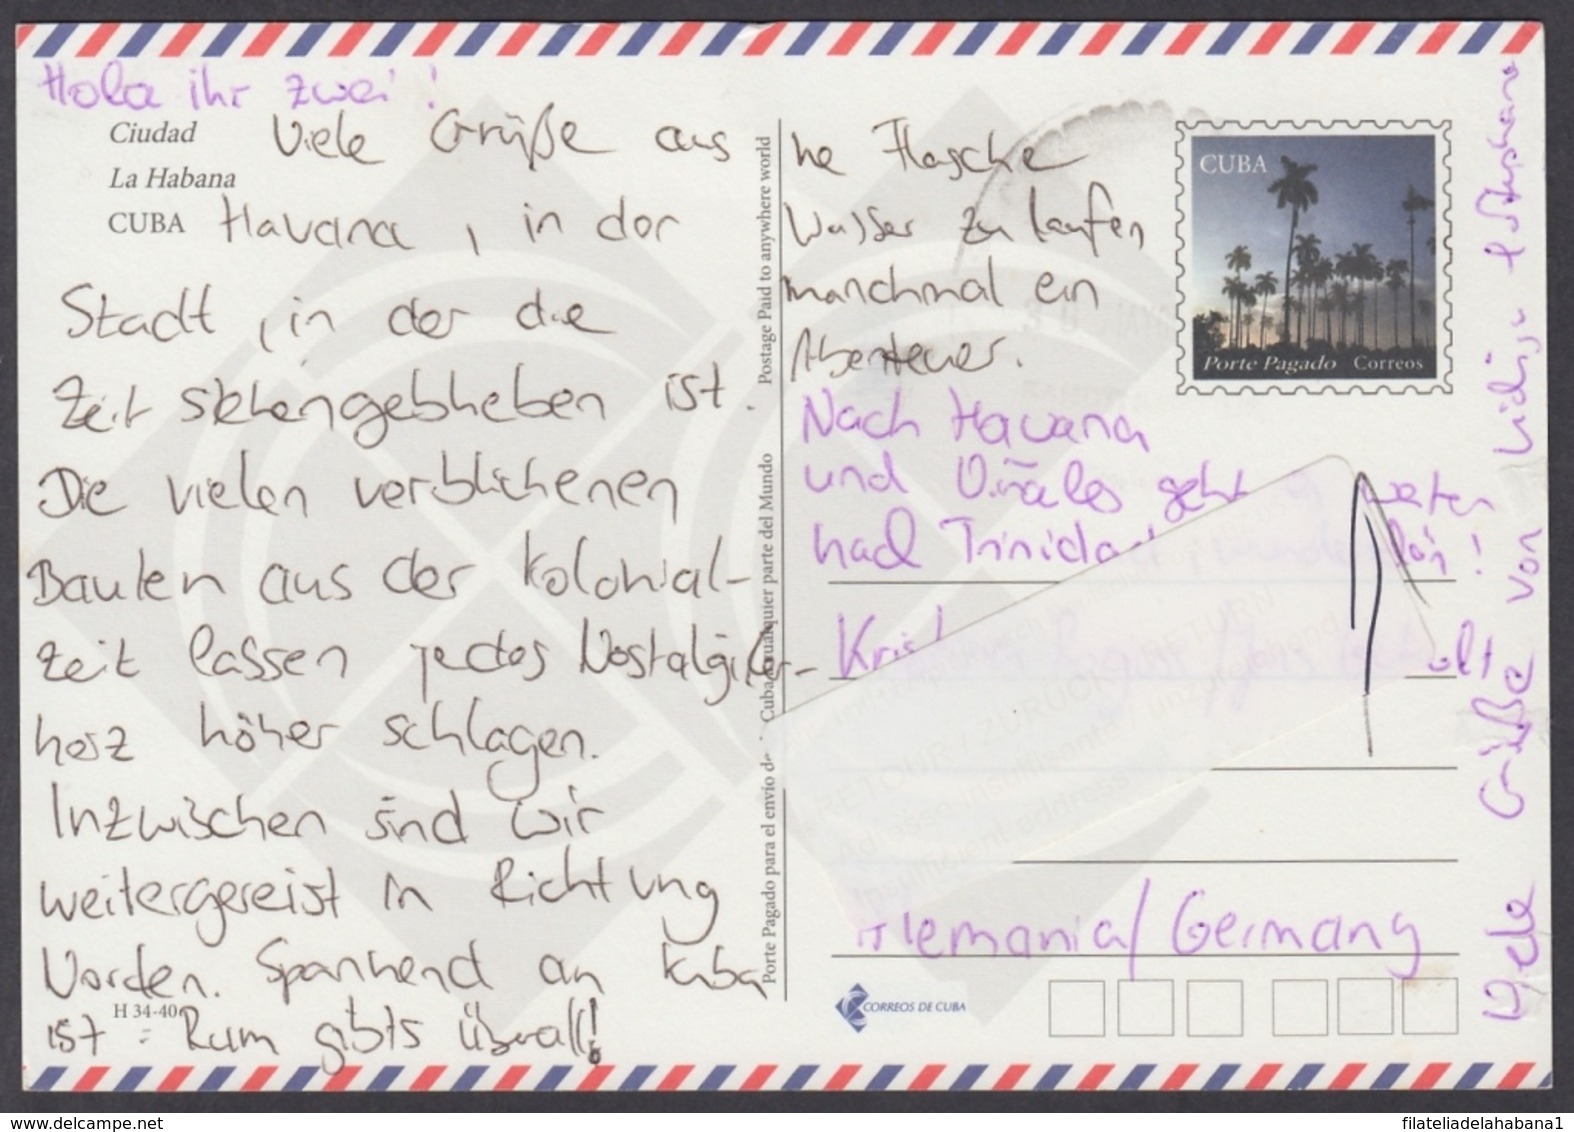 Hola ihr zwei!
Ciudad
La Habana
CUBA
Viele Grüße aus
Havana, in der
Stadt, in der die
Zeit stehengeblieben ist.
Die vielen verblichenen
Bauten aus der Kolonial-
zeit lassen jedes Nostalgiker-
herz höher schlagen.
Inzwischen sind wir
weitergereist in Richtung
Norden. Spannend an Kuba
ist: Rum gibts überall!
H 34-40
Porte Pagado para el envío de Cuba a cualquier parte del Mundo
Postage Paid to anywhere world
ne Flasche
Wasser zu kaufen
manchmal ein
Abenteuer.
Nach Havana
und Viñales geht weiter
nach Trinidad
CUBA
Porte Pagado Correos
RETOUR / ZURÜCK / RETURN
Alemania/Germany
CORREOS DE CUBA
Viele Grüße von
filateliadelahabana1